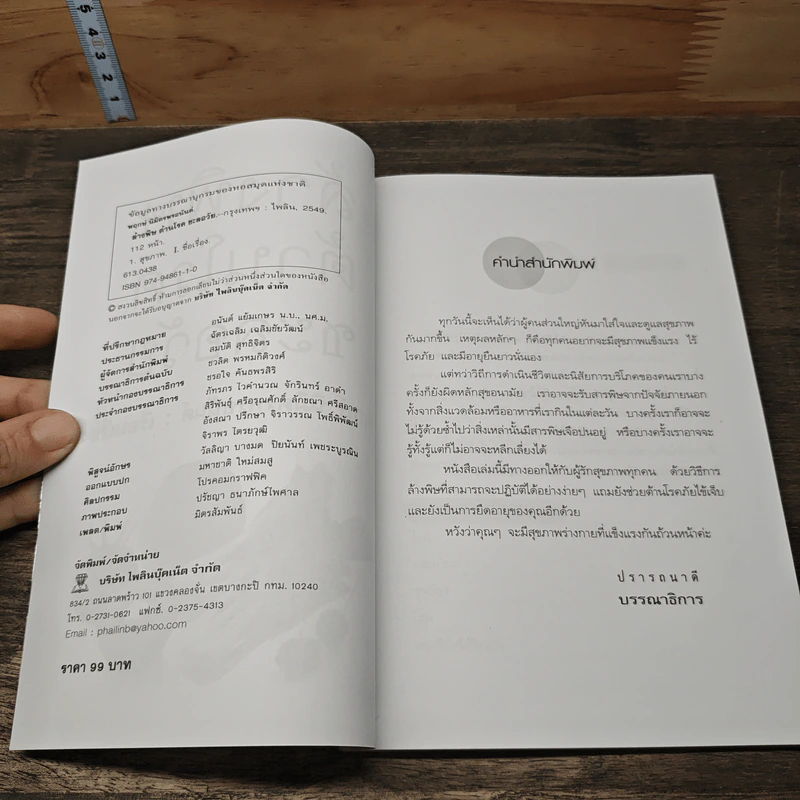 5
4
3
2
1
ข้อมูลทางบรรณานุกรมของหอสมุดแห่งชาติ
พฤกษ์ นิมิตรพรอนันต์
ล้างพิษ ต้านโรค ชะลอวัย.--กรุงเทพฯ : ไพลิน, 2549.
112 หน้า.
1. สุขภาพ. I. ชื่อเรื่อง.
613.0438
ISBN 974-94861-1-0
© สงวนลิขสิทธิ์ ห้ามการลอกเลียนไม่ว่าส่วนหนึ่งส่วนใดของหนังสือ
นอกจากจะได้รับอนุญาตจาก บริษัท ไพลินบุ๊คเน็ต จำกัด
ที่ปรึกษากฎหมาย อนันต์ แย้มเกษร น.บ., นศ.ม.
ประธานกรรมการ ฉัตรเฉลิม เฉลิมชัยวัฒน์
ผู้จัดการสำนักพิมพ์ สมบัติ สุทธิจิตร
บรรณาธิการต้นฉบับ ชวลิต พรหมกิติวงศ์
หัวหน้ากองบรรณาธิการ ชรอใจ คันธอพสิริ
ประจำกองบรรณาธิการ ภัทรภร ไวคำนวณ จักรินทร์ อาดำ
สิริพันธุ์ ศรีอรุณศักดิ์ ลักขณา ศรีสอาด
อังสณา ปรึกษา จิราวรรณ โพธิ์พิพัฒน์
จิราพร ไตรยวุฒิ
พิสูจน์อักษร วัลลิญา บางมด ปิยนันท์ เพชระบูรณิน
ออกแบบปก มหาชาติ ใหม่สมสู
ศิลปกรรม โปรคอมกราฟฟิค
ภาพประกอบ ปรัชญา ธนาภักษ์ไพศาล
เพลต/พิมพ์ มิตรสัมพันธ์
จัดพิมพ์/จัดจำหน่าย
บริษัท ไพลินบุ๊คเน็ต จำกัด
834/2 ถนนลาดพร้าว 101 แขวงคลองจั่น เขตบางกะปิ กทม. 10240
โทร. 0-2731-0621 แฟกซ์. 0-2375-4313
Email : phailinb@yahoo.com
ราคา 99 บาท
คำนำสำนักพิมพ์
ทุกวันนี้จะเห็นได้ว่าผู้คนส่วนใหญ่หันมาใส่ใจและดูแลสุขภาพ
กันมากขึ้น เหตุผลหลักๆ ก็คือทุกคนอยากจะมีสุขภาพแข็งแรง ไร้
โรคภัย และมีอายุยืนยาวนั่นเอง
แต่ทว่าวิถีการดำเนินชีวิตและนิสัยการบริโภคของคนเราบาง
ครั้งก็ยังผิดหลักสุขอนามัย เราอาจจะรับสารพิษจากปัจจัยภายนอก
ทั้งจากสิ่งแวดล้อมหรืออาหารที่เรากินในแต่ละวัน บางครั้งเราก็อาจจะ
ไม่รู้ด้วยซ้ำไปว่าสิ่งเหล่านั้นมีสารพิษเจือปนอยู่ หรือบางครั้งเราอาจจะ
รู้ทั้งรู้แต่ก็ไม่อาจจะหลีกเลี่ยงได้
หนังสือเล่มนี้มีทางออกให้กับผู้รักสุขภาพทุกคน ด้วยวิธีการ
ล้างพิษที่สามารถจะปฏิบัติได้อย่างง่ายๆ แถมยังช่วยต้านโรคภัยไข้เจ็บ
และยังเป็นการยืดอายุของคุณอีกด้วย
หวังว่าคุณๆ จะมีสุขภาพร่างกายที่แข็งแรงกันถ้วนหน้าค่ะ
ปรารถนาดี
บรรณาธิการ